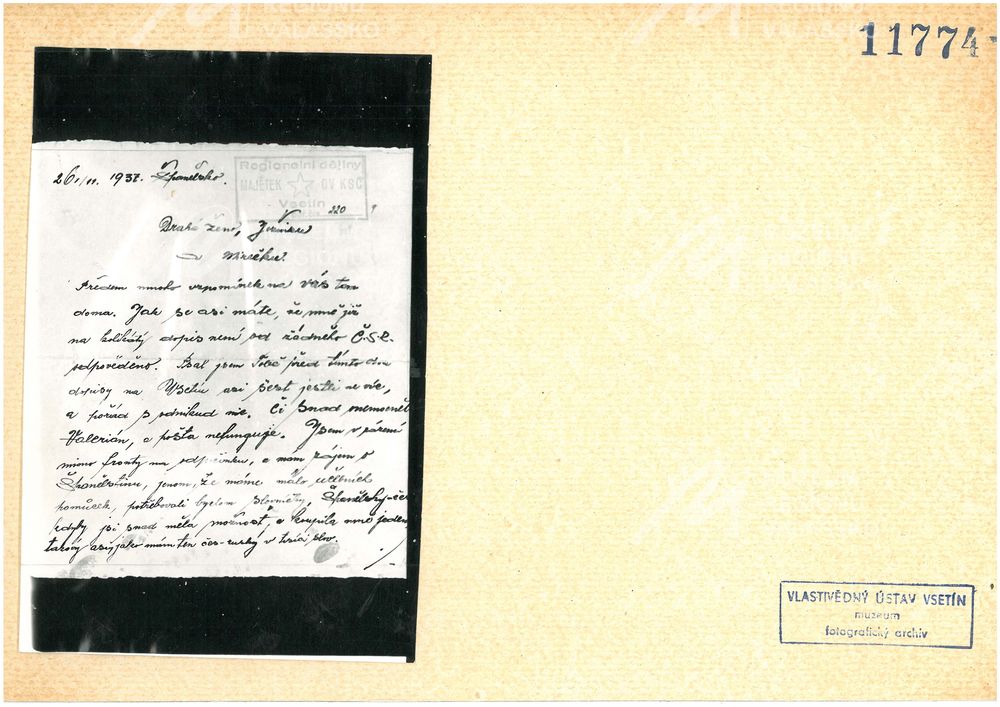 11774
26/11. 1937. Španělsko.
Regionelní dějiny
MAJETEK OV KSČ
Vsetín
220
Drahá ženo, Jiřinko
a Mirečku.
Předem mnoho vzpomínek na vás tam
doma. Jak se asi máte, že mně již
na kolikátý dopis není od žádného Č.S.R.
odpověděno. Psal jsem Tobě před tímto dva
dopisy na Vsetín asi šest jestli ne víc,
a pořád s odnikud nic. Či snad onemocněl
Valerián, a pošta nefunguje. Jsem v zázemí
mimo fronty na odpočinku, a mám zájem o
Španělštinu, jenom, že máme málo učebních
pomůcek, potřebovali bychom slovníčky, Španělsky-čes
kdyby jsi snad měla možnost, a koupila mně jeden
takový asi jako mám ten čes-ruský v tisíc slov.
VLASTIVĚDNÝ ÚSTAV VSETÍN
muzeum
fotografický archiv